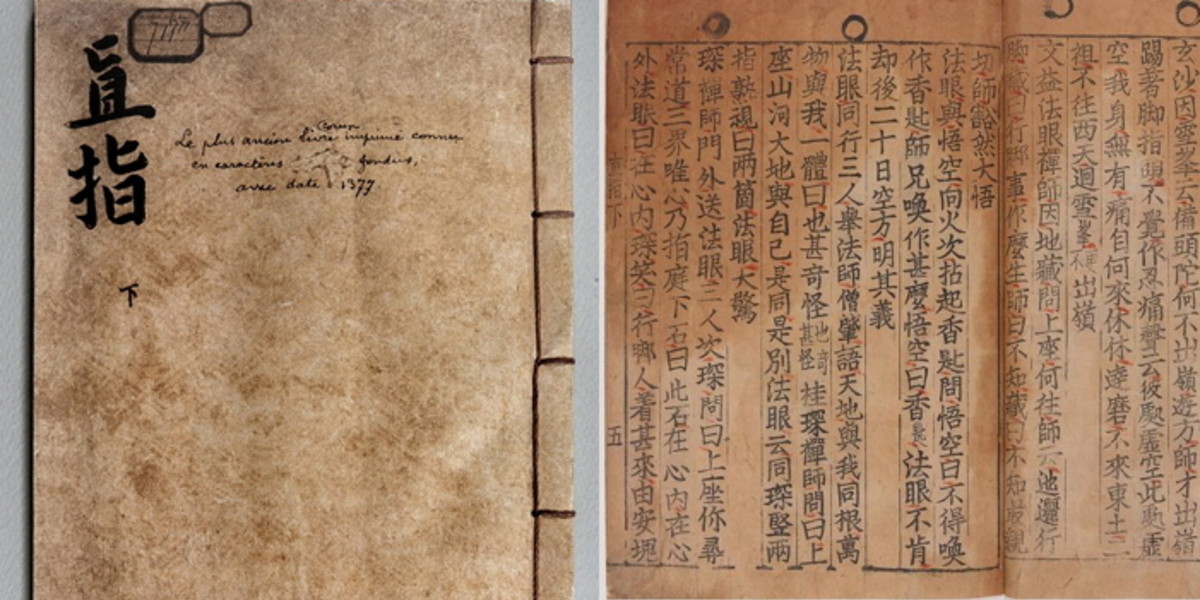 直指
下
Le plus ancien livre coréen imprimé connu
en caractères fondus,
avec date = 1377.
玄沙因雪峯云備頭陀何不出嶺遊方師才出嶺
踢著脚指頭不覺作忍痛聲云彼處虛空此處虛
空我身無有痛自何來休休達磨不來東土二
祖不往西天迴雪峯更不出嶺
文益法眼禪師因地藏問上座何往師云迆邐行
脚藏曰行脚事作麽生師曰不知藏曰不知最親
切師豁然大悟
法眼與悟空向火次拈起香匙問悟空曰不得喚
作香匙師兄喚作甚麽悟空曰香匙法眼不肯
却後二十日空方明其義
法眼同行三人舉法師僧肇語天地與我同根萬
物與我一體曰也甚奇怪也奇甚怪桂琛禪師問曰上
座山河大地與自己是同是別法眼云同琛竪兩
指熟視曰兩箇法眼大驚
琛禪師門外送法眼三人次琛問曰上坐你尋
常道三界唯心乃指庭下石曰此石在心內在心
外法眼曰在心內琛笑曰行脚人着甚來由安塊
直指下
五